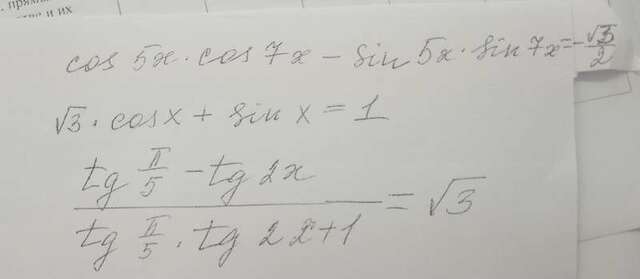 cos 5x · cos 7x − sin 5x · sin 7x = −√3/2
√3 · cos x + sin x = 1
(tg π/5 − tg 2x)/(tg π/5 · tg 2x + 1) = √3